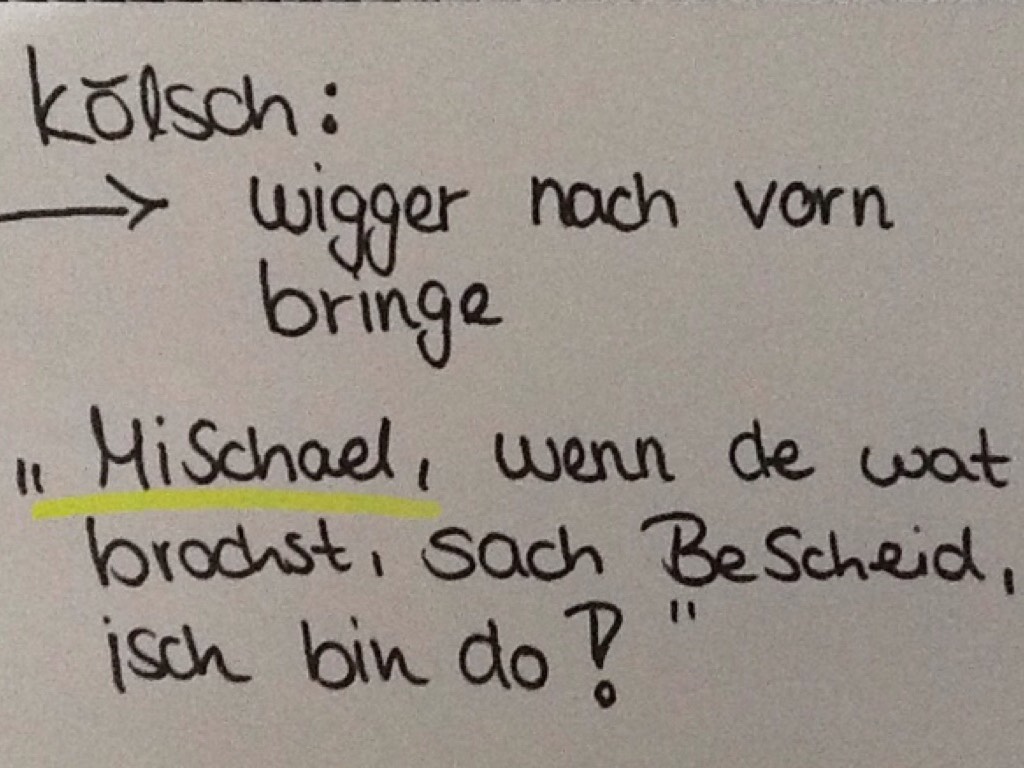 Kölsch:
→ wigger nach vorn
bringe
„Mischael, wenn de wat
brochst, sach Bescheid,
isch bin do!"